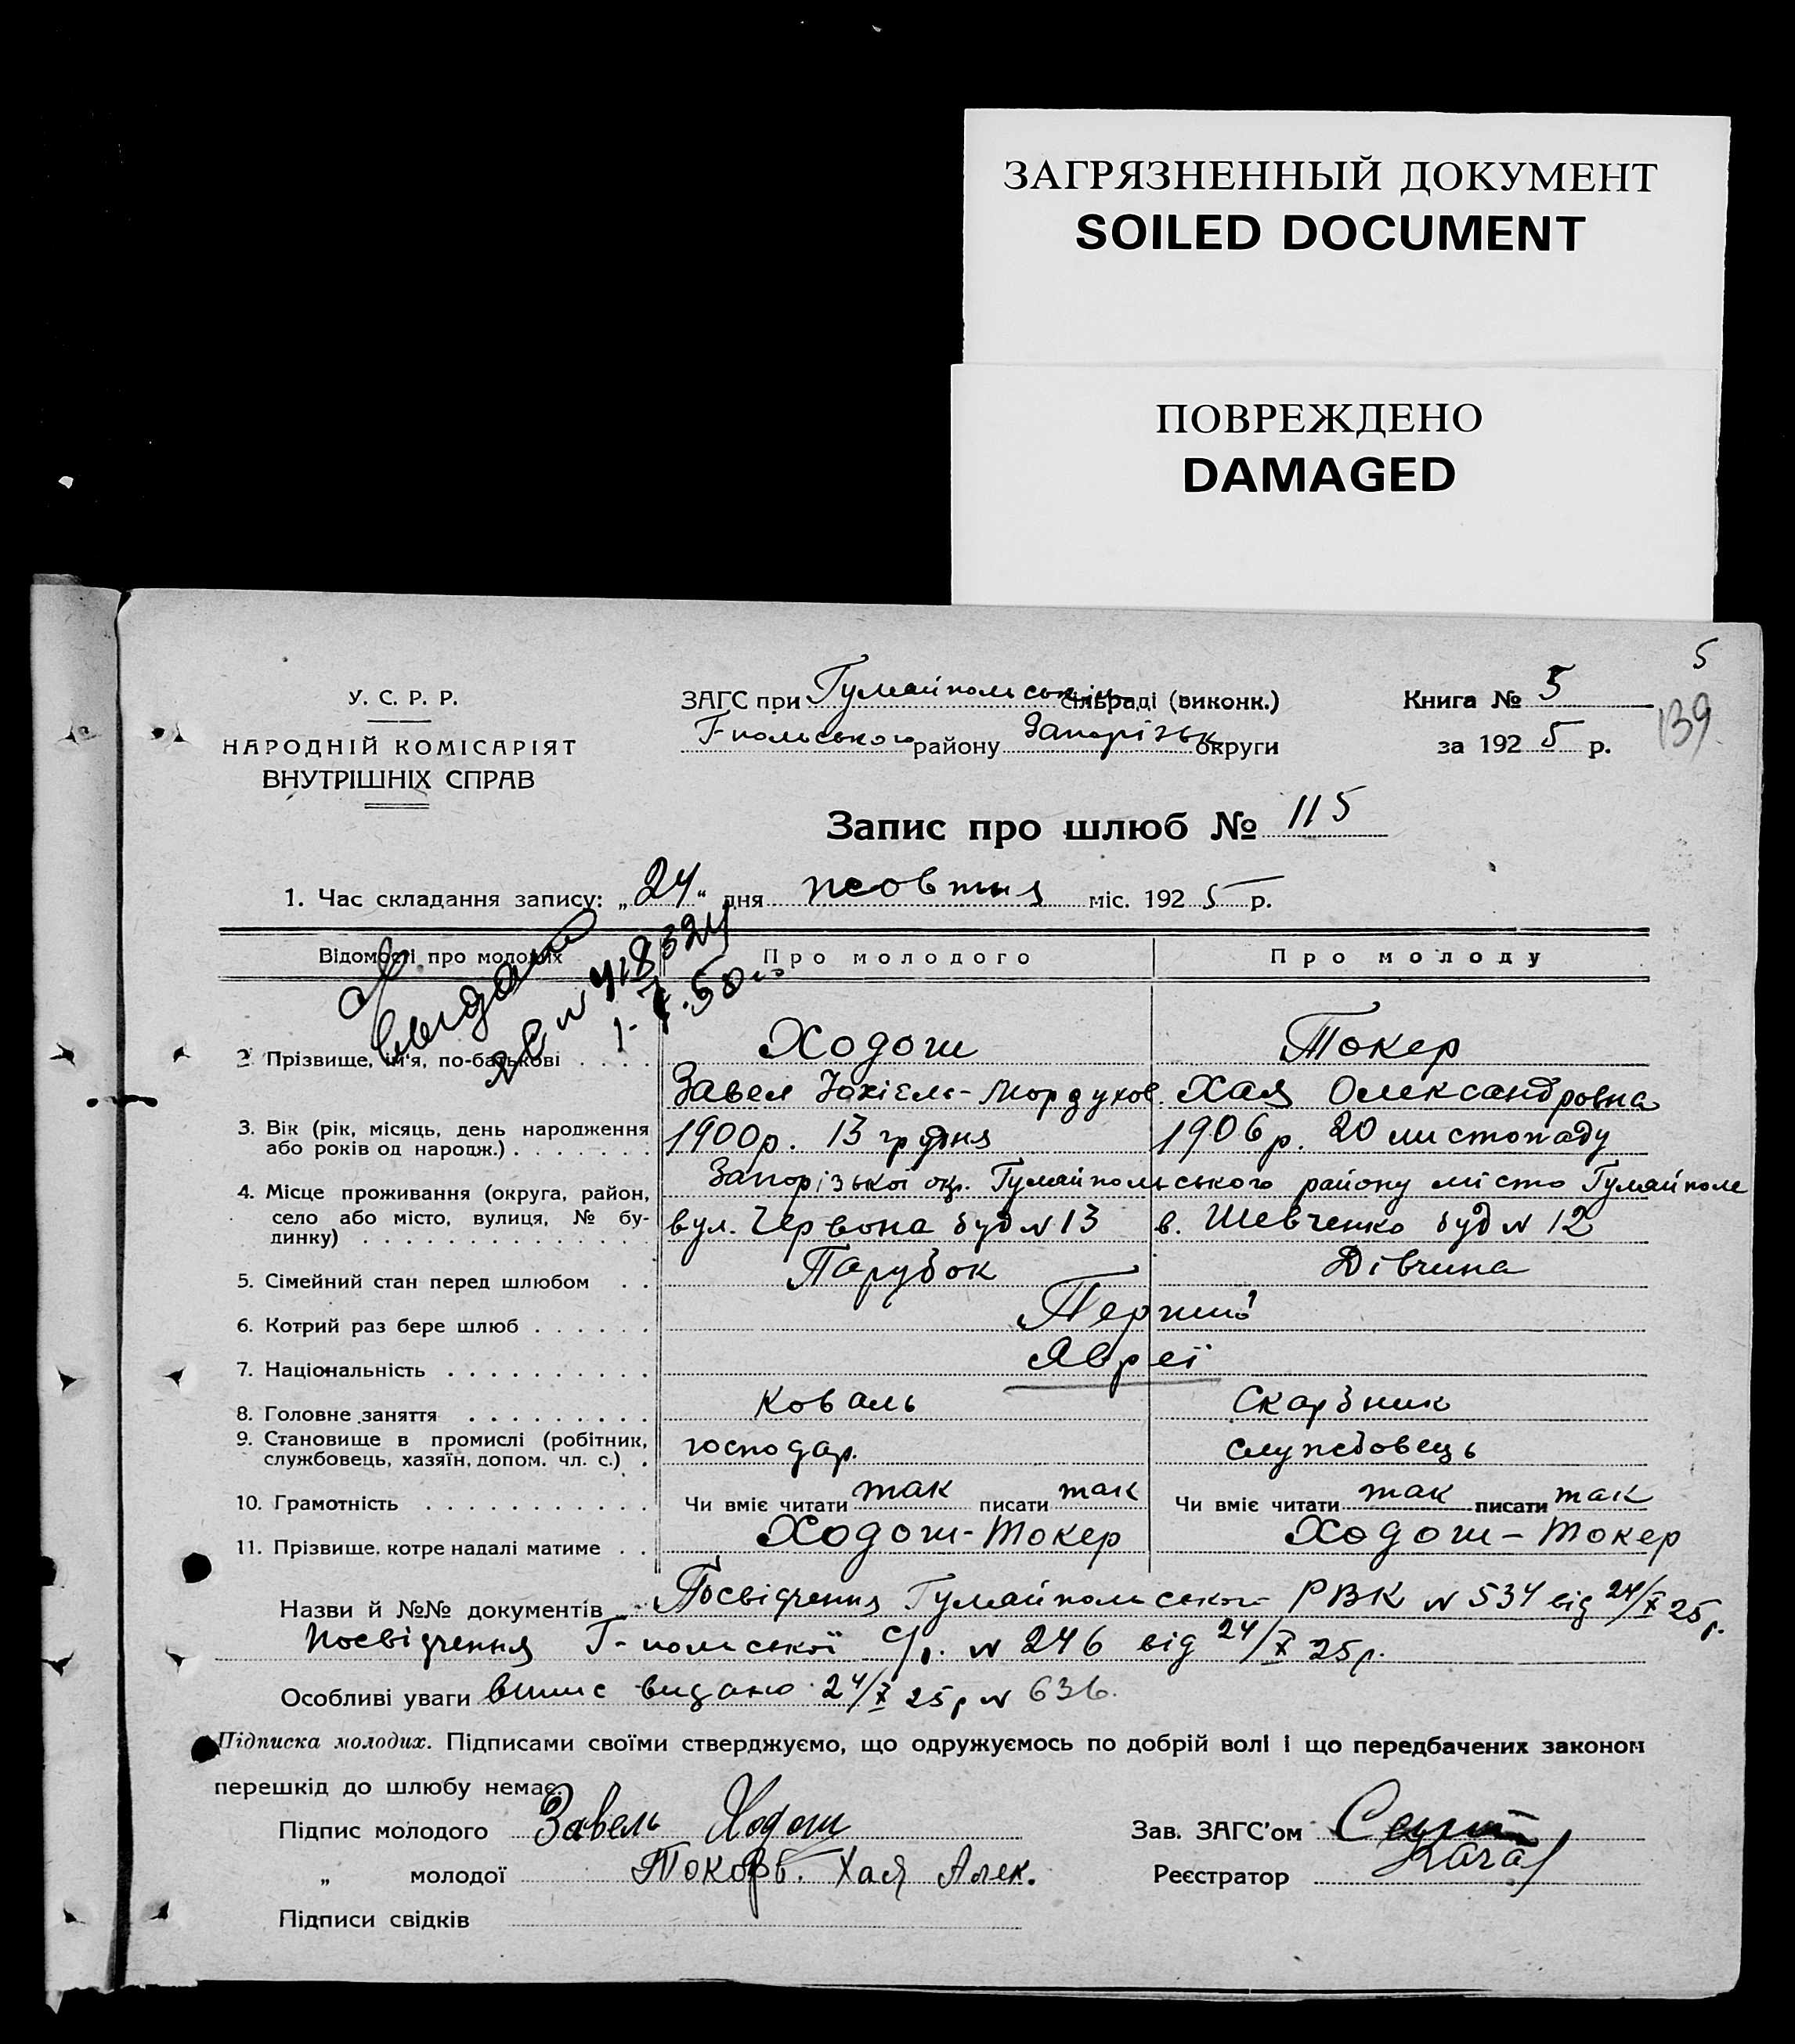 ЗАГРЯЗНЕННЫЙ ДОКУМЕНТ
SOILED DOCUMENT
ПОВРЕЖДЕНО
DAMAGED
5
139
У. С. Р. Р.
НАРОДНІЙ КОМІСАРІЯТ
ВНУТРІШНІХ СПРАВ
ЗАГС при Гуляйпольський сільраді (виконк.)
Г-польського району Запорізьк округи
Книга № 5
за 1925 р.
Запис про шлюб № 115
1. Час складання запису: „24“ дня жовтня міс. 1925 р.
Відомості про молодих
Про молодого
Про молоду
выдано
2. Прізвище, ім'я, по-батькові . . . .
Ходош
Токер
Завел Іахієль-Мордухов.
Хая Олександровна
3. Вік (рік, місяць, день народження або років од народж.) . . . . . . .
1900р. 13 грудня
1906р. 20 листопаду
4. Місце проживання (округа, район, село або місто, вулиця, № будинку) . . . . . . . . . . . . .
Запорізької окр. Гуляйпольського району місто Гуляйполе
вул. Червона буд N 13
в. Шевченко буд N 12
5. Сімейний стан перед шлюбом . .
Парубок
Дівчина
6. Котрий раз бере шлюб . . . . . .
Перший
7. Національність . . . . . . . . . .
Явреї
8. Головне заняття . . . . . . . . .
Коваль
Скарбник
9. Становище в промислі (робітник, службовець, хазяїн, допом. чл. с.) .
господар.
службовець
10. Грамотність . . . . . . . . . . .
Чи вміє читати так писати так
Чи вміє читати так писати так
11. Прізвище, котре надалі матиме . .
Ходош-Токер
Ходош-Токер
Назви й №№ документів Посвідчення Гуляйпольського РВК N 534 від 24/X 25р.
Посвідчення Г-польської С/р. N 246 від 24/X 25р.
Особливі уваги випис видано 24/X 25р N 636.
Підписка молодих. Підписами своїми стверджуємо, що одружуємось по добрій волі і що передбачених законом
перешкід до шлюбу немає.
Підпис молодого Завель Ходош
„ молодої Токорь. Хая Алек.
Підписи свідків
Зав. ЗАГС'ом
Реєстратор